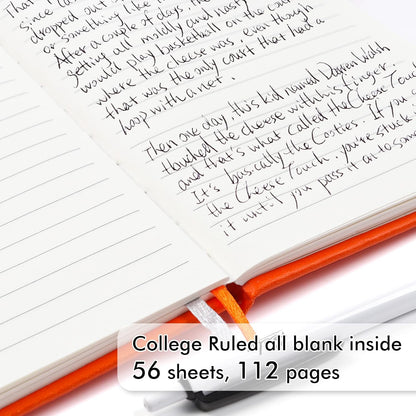 since
dropped out
or something like
After a couple of days, the
getting all moldy and nasty
would play basketball on the court
where the cheese was, even though
that was the only court that had a
hoop with a net.
Then one day, this kid named Darren Walsh
touched the cheese with his finger,
and that's what called the Cheese Touch
It's basically the Cooties. If you
the Cheese Touch, you're stuck
it until you pass it on to some
College Ruled all blank inside
56 sheets, 112 pages